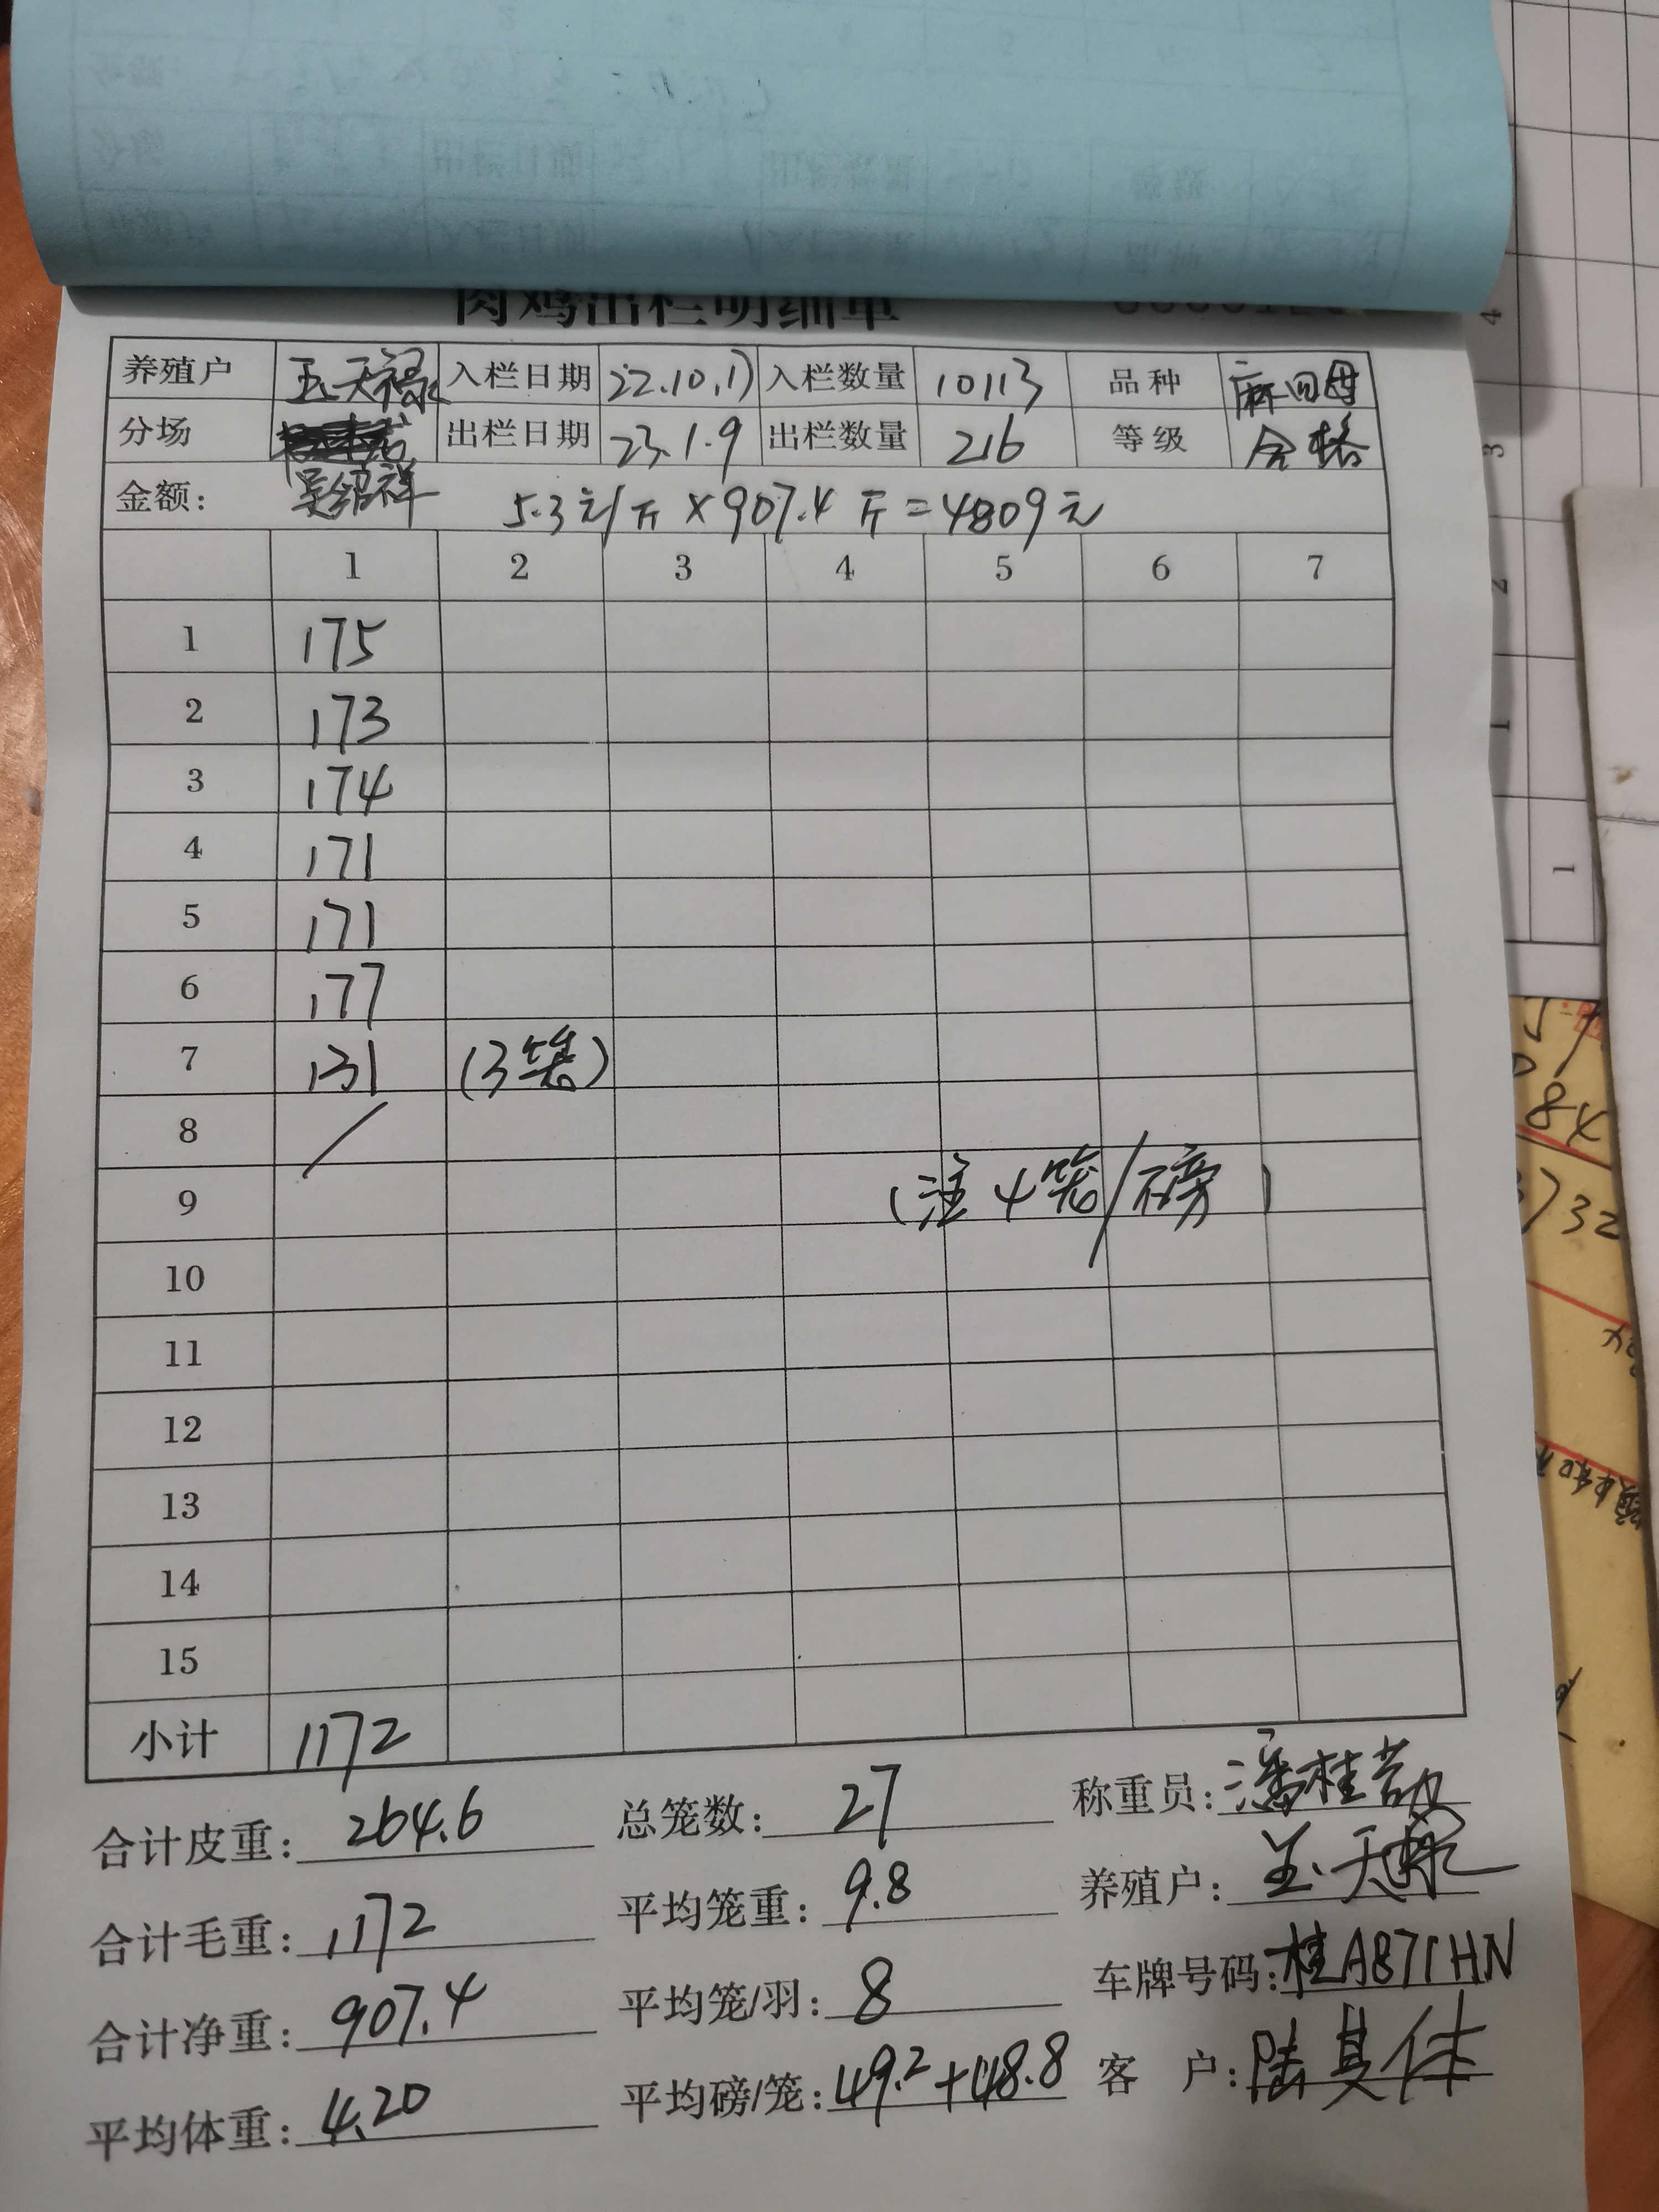 肉鸡出栏明细单
养殖户 玉天禄 入栏日期 22.10.17 入栏数量 10113 品种 麻四母
分场 吴绍祥 出栏日期 23.1.9 出栏数量 216 等级 合格
金额: 5.3元/斤×907.4斤=4809元
1 2 3 4 5 6 7
1 175
2 173
3 174
4 171
5 171
6 177
7 131 (3笼)
8 /
9 (注4笼/磅)
10
11
12
13
14
15
小计 1172
合计皮重: 264.6 总笼数: 27 称重员: 潘桂
合计毛重: 1172 平均笼重: 9.8 养殖户: 玉天禄
合计净重: 907.4 平均笼/羽: 8 车牌号码: 桂AB71HN
平均体重: 4.20 平均磅/笼: 49.2+48.8 客户: 陆其